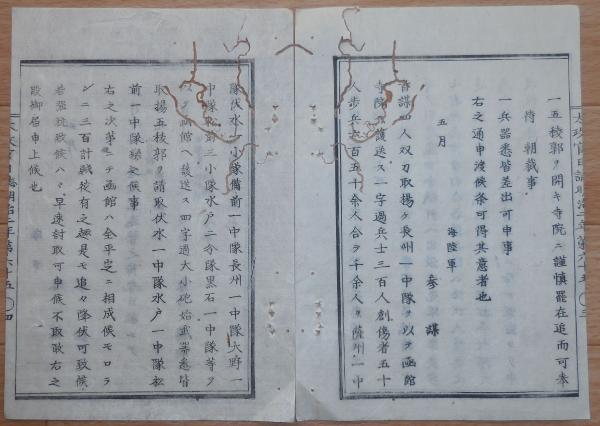 一五稜郭ヲ開キ寺院ニ謹慎罷在追而可奉
待 朝裁事
一兵器悉皆差出可申事
右之通申渡候条可得其意者也
五月
海陸軍
参謀
首謀四人双刀取揚ケ長州一中隊ヲ以テ函館
寺院ヘ護送ス二字過兵士三百人創傷者五十
人歩兵六百五十余人合テ千余人ヲ薩州一中
隊伏水一小隊備前一中隊長州一中隊大野一
中隊松前三小隊水戸二分隊黒石一中隊等ヲ
以テ函館ヘ護送ス四字過大小砲始武器悉皆
取揚五稜郭ヲ請取伏水一中隊水戸一中隊松
前一中隊繰込候事
右之次第ニテ函館ハ全平定ニ相成候モロラ
ンニ三百計賊徒有之趣是モ追々降伏可致候
若強抗致候ハヽ早速討取可申候不取敢右之
段御届申上候也
太政官日誌明治二年第六十五
三
太政官日誌明治二年第六十五
四